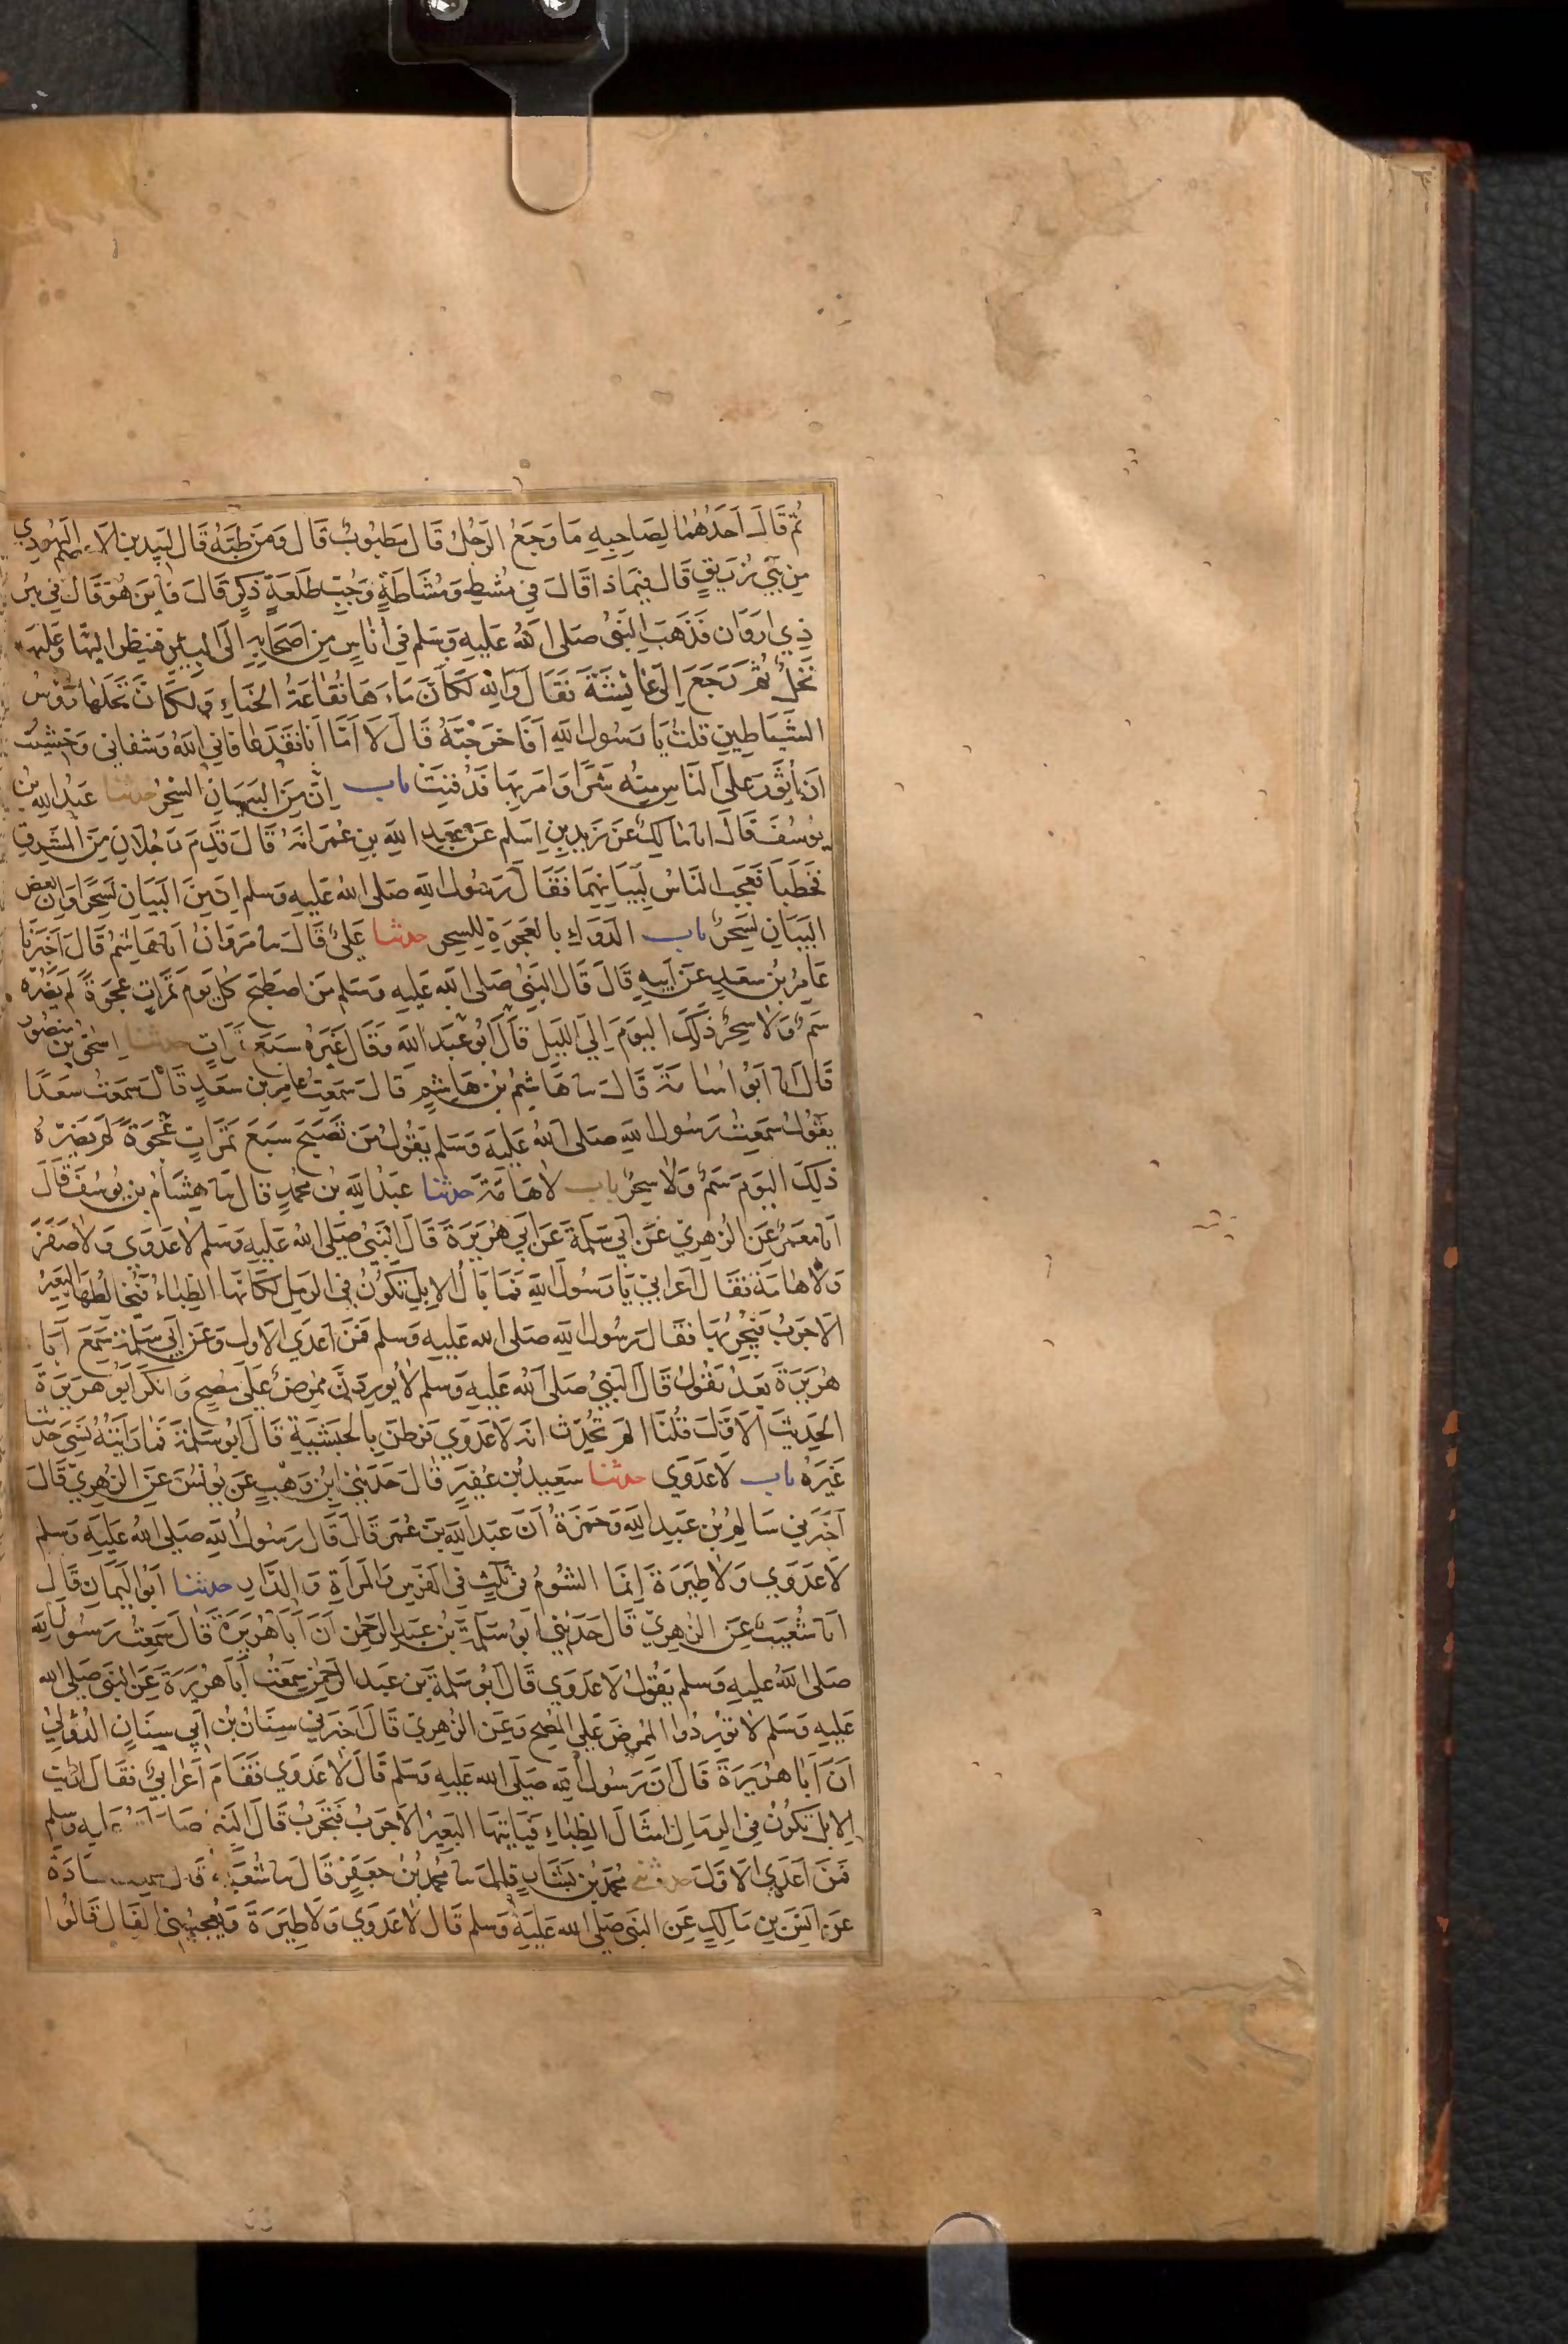 ثُمَّ قَالَ اَحَدُهُمَا لِصَاحِبِهِ مَا وَجَعُ الرَّجُلِ قَالَ مَطْبُوبٌ قَالَ وَمَن طَبَّهُ قَالَ لَبِيد بن الاعصم اليَهُودِي
مِن بَنِي زُرَيقٍ قَالَ فِيمَا ذا قَالَ فِي مُشطٍ وَمُشَاطَةٍ وَجُبِّ طَلعَةٍ ذَكَرٍ قَالَ فَاَينَ هُوَ قَالَ فِي بئر
ذِي اروَان فَذَهَبَ النَّبِيُّ صَلى اللهُ عَلَيهِ وَسَلم فِي اُنَاسٍ مِن اَصحَابِهِ اِلَى البِئرِ فَنَظَرَ اِلَيهَا وَعَلَيهَا
نَخلٌ ثُمَّ رَجَعَ اِلَى عَائِشَةَ فَقَالَ وَاللهِ لَكَاَنَّ مَاءَهَا نُقَاعَةُ الحِنَّاءِ وَلَكَاَنَّ نَخلَهَا رُؤسُ
الشَّيَاطِينِ قُلتُ يَا رَسُولَ اللهِ اَفَاَخرَجتَهُ قَالَ لَا اَمَّا اَنَا فَقَد عَافَانِيَ اللهُ وَشَفَانِي وَخَشِيتُ
اَن اُثَوِّرَ عَلَى النَّاسِ مِنهُ شَرًّا وَاَمَرَ بِهَا فَدُفِنَت باب اِنَّ مِنَ البَيَانِ السِّحرُ حدثنا عَبدُ اللهِ بنُ
يُوسُفَ قَالَ انا مَالِكٌ عَن زَيدِ بنِ اَسلَم عَن عَبدِ اللهِ بنِ عُمَرَ انهُ قَالَ قَدِمَ رَجُلَانِ مِنَ المَشرِقِ
فَخَطَبَا فَعَجِبَ النَّاسُ لِبَيَانِهِمَا فَقَالَ رَسُولُ اللهِ صَلى اللهُ عَلَيهِ وَسَلم اِنَّ مِنَ البَيَانِ لَسِحرًا وَاِنَّ بَعضَ
البَيَانِ لَسِحرٌ باب الدَّوَاءِ بِالعَجوَةِ لِلسِّحرِ حدثنا عَلِيٌّ قَالَ ثنا مَروَانُ انا هَاشِمٌ قَالَ اَخبَرَنَا
عَامِرُ بنُ سَعدٍ عَن اَبِيهِ قَالَ قَالَ النَّبِيُّ صَلَى اللهُ عَلَيهِ وَسَلم مَنِ اصطَبَحَ كُلَّ يَومٍ تَمَرَاتٍ عَجوَةً لَم يَضُرَّهُ
سَمٌّ وَلَا سِحرٌ ذَلِكَ اليَومَ اِلَى اللَّيلِ قَالَ اَبُو عَبدِ اللهِ وَقَالَ غَيرُهُ سَبعَ تَمَرَاتٍ حدثنا اِسحَقُ بن مَنصُور
قَالَ انا اَبُو اُسَامَةَ قَالَ ثنا هَاشِمُ بنُ هَاشِمٍ قَالَ سَمِعتُ عَامِرَ بن سَعدٍ قَالَ سَمِعتُ سَعدًا
يَقُولُ سَمِعتُ رَسُولَ اللهِ صَلى اللهُ عَلَيهِ وَسَلم يَقُولُ مَن تَصَبَّحَ سَبعَ تَمَرَاتٍ عَجوَةً لَم يَضُرّهُ
ذَلِكَ اليَومَ سَمٌّ وَلَا سِحرٌ باب لَا هَامَةَ حدثنا عَبدُ اللهِ بن مُحَمَّدٍ قَالَ ثنا هِشَامُ بن يُوسُفَ قَالَ
انا مَعمَرٌ عَنِ الزُّهرِيِّ عَن اَبِي سَلَمَةَ عَن اَبِي هُرَيرَةَ قَالَ النَّبِيُّ صَلَى اللهُ عَلَيهِ وَسَلم لَا عَدوَى وَلَا صَفَرَ
وَلَا هَامَةَ فَقَالَ اَعرَابِيٌّ يَا رَسُولَ اللهِ فَمَا بَالُ الاِبِلِ تَكُونُ فِي الرَّملِ لَكَاَنَّهَا الظِّبَاءُ فَيُخَالِطُهَا البَعِيرُ
الاَجرَبُ فَيُجرِبُهَا فَقَالَ رَسُولُ اللهِ صَلى الله عَلَيهِ وَسَلم فَمَن اَعدَى الاَولَ وَعَن اَبِي سَلَمَةَ سَمِعَ اَبَا
هُرَيرَةَ بَعدُ يَقُولُ قَالَ النَّبِيُّ صَلى اللهُ عَلَيهِ وَسَلم لَا يُورِدَنَّ مُمرِضٌ عَلَى مُصِحٍّ وَاَنكَرَ اَبُو هُرَيرَةَ
الحَدِيثَ الاَوَّلَ قُلنَا اَلَم تُحَدِّث اَنهُ لَا عَدوَى فَرَطَنَ بِالحَبَشِيَّةِ قَالَ اَبُو سَلَمَةَ فَمَا رَاَيتُهُ نَسِيَ حَدِيثًا
غَيرَهُ باب لَا عَدوَى حدثنا سَعِيدُ بنُ عُفَيرٍ قَالَ حَدَّثَنِي ابنُ وَهبٍ عَن يُونُسَ عَنِ الزُّهرِيِّ قَالَ
اَخبَرَنِي سَالِمُ بنُ عَبدِ اللهِ وَحَمزَةُ اَنَّ عَبدَ اللهِ بنَ عُمَرَ قَالَ قَالَ رَسُولُ اللهِ صَلى اللهُ عَلَيهِ وَسَلم
لَا عَدوَى وَلَا طِيَرَةَ اِنَّمَا الشُّومُ فِي ثَلَثٍ فِي الفَرَسِ وَالمَراَةِ وَالدَّارِ حدثنا اَبُو اليَمَانِ قَالَ
انا شُعَيبٌ عَنِ الزُّهرِيِّ قَالَ حَدَّثَنِي اَبُو سَلَمَةَ بنُ عَبدِ الرَّحمنِ اَنَّ اَبَا هُرَيرَةَ قَالَ سَمِعتُ رَسُولَ اللهِ
صَلى اللهُ عَلَيهِ وَسَلم يَقُولُ لَا عَدوَى قَالَ اَبُو سَلَمَةَ بن عَبدِ الرَّحمنِ سَمِعتُ اَبَا هُرَيرَةَ عَنِ النَّبِيِّ صَلى الله
عَلَيهِ وَسَلم لَا تُورِدُوا المُمرِضَ عَلَى المُصِحِّ وَعَنِ الزُّهرِيِّ قَالَ اَخبَرَنِي سِنَانُ بنُ اَبِي سِنَانٍ الدُّوَلِيُّ
اَنَّ اَبَا هُرَيرَةَ قَالَ اِنَّ رَسُولَ اللهِ صَلى الله عَلَيهِ وَسَلم قَالَ لَا عَدوَى فَقَامَ اَعرَابِيٌّ فَقَالَ اَرَاَيت
الاِبِلَ تَكُونُ فِي الرِّمَالِ اَمثَالَ الظِّبَاءِ فَيَاتِيهَا البَعِيرُ الاَجرَبُ فَتَجرَبُ قَالَ النَّبِيُّ صَلى اللهُ عَلَيهِ وَسَلم
فَمَن اَعدَى الاَوَّلَ حدثني مُحَمَّدُ بنُ بَشَّارٍ قَالَ ثنا مُحَمَّدُ بنُ جَعفَرٍ قَالَ ثنا شُعبَةُ قَالَ سَمِعتُ قَتَادَةَ
عَن اَنَسِ بنِ مَالِكٍ عَنِ النَّبِيِّ صَلى الله عَلَيهِ وَسَلم قَالَ لَا عَدوَى وَلَا طِيَرَةَ وَيُعجِبُنِي الفَالُ قَالُوا